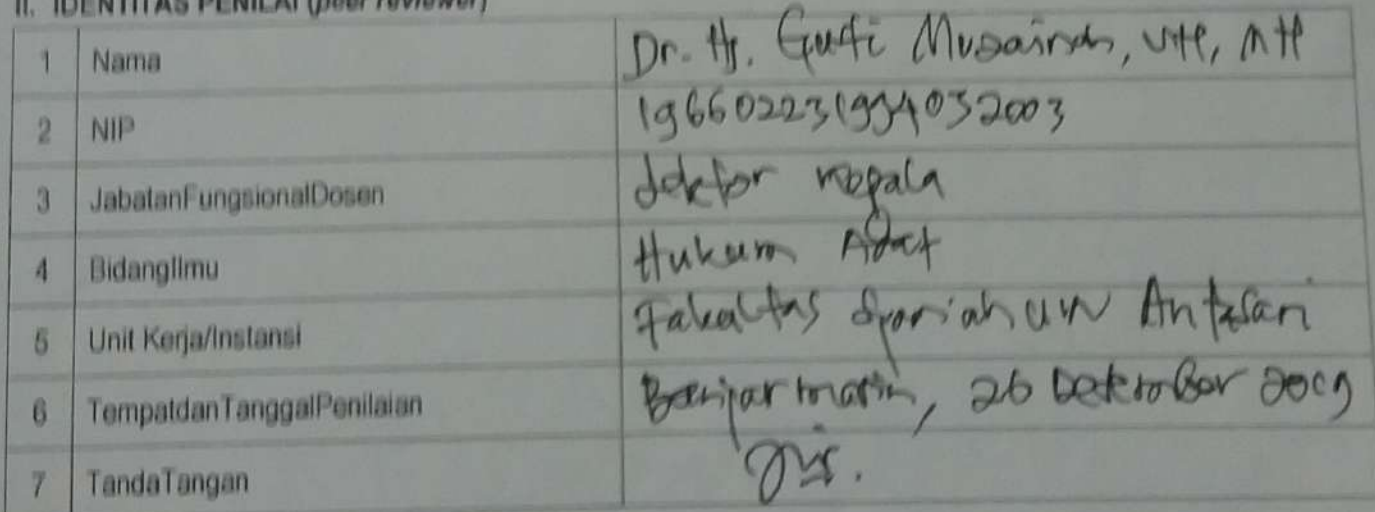 II. IDENTITAS PENILAI (peer reviewer)
1 Nama Dr. Hj. Gusti Muzainah, SH, MH
2 NIP 196602231994032003
3 JabatanFungsionalDosen Lektor Kepala
4 BidangIlmu Hukum Adat
5 Unit Kerja/Instansi Fakultas Syariah UIN Antasari
6 TempatdanTanggalPenilaian Banjarmasin, 26 2019
7 TandaTangan